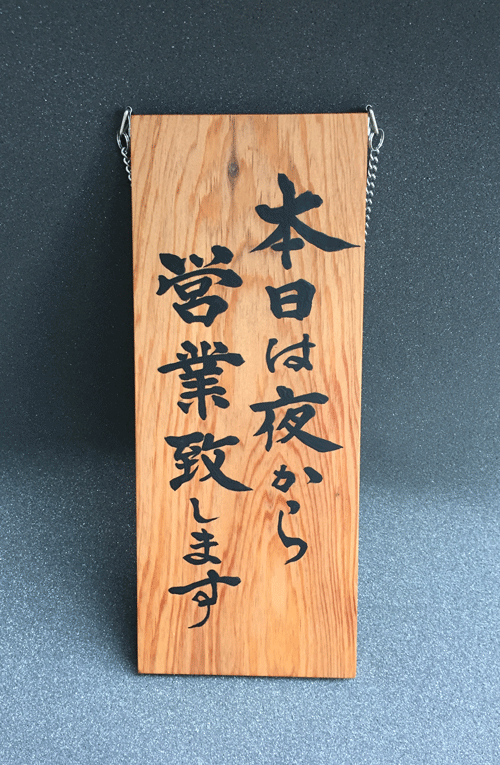 本日は夜から
営業致します